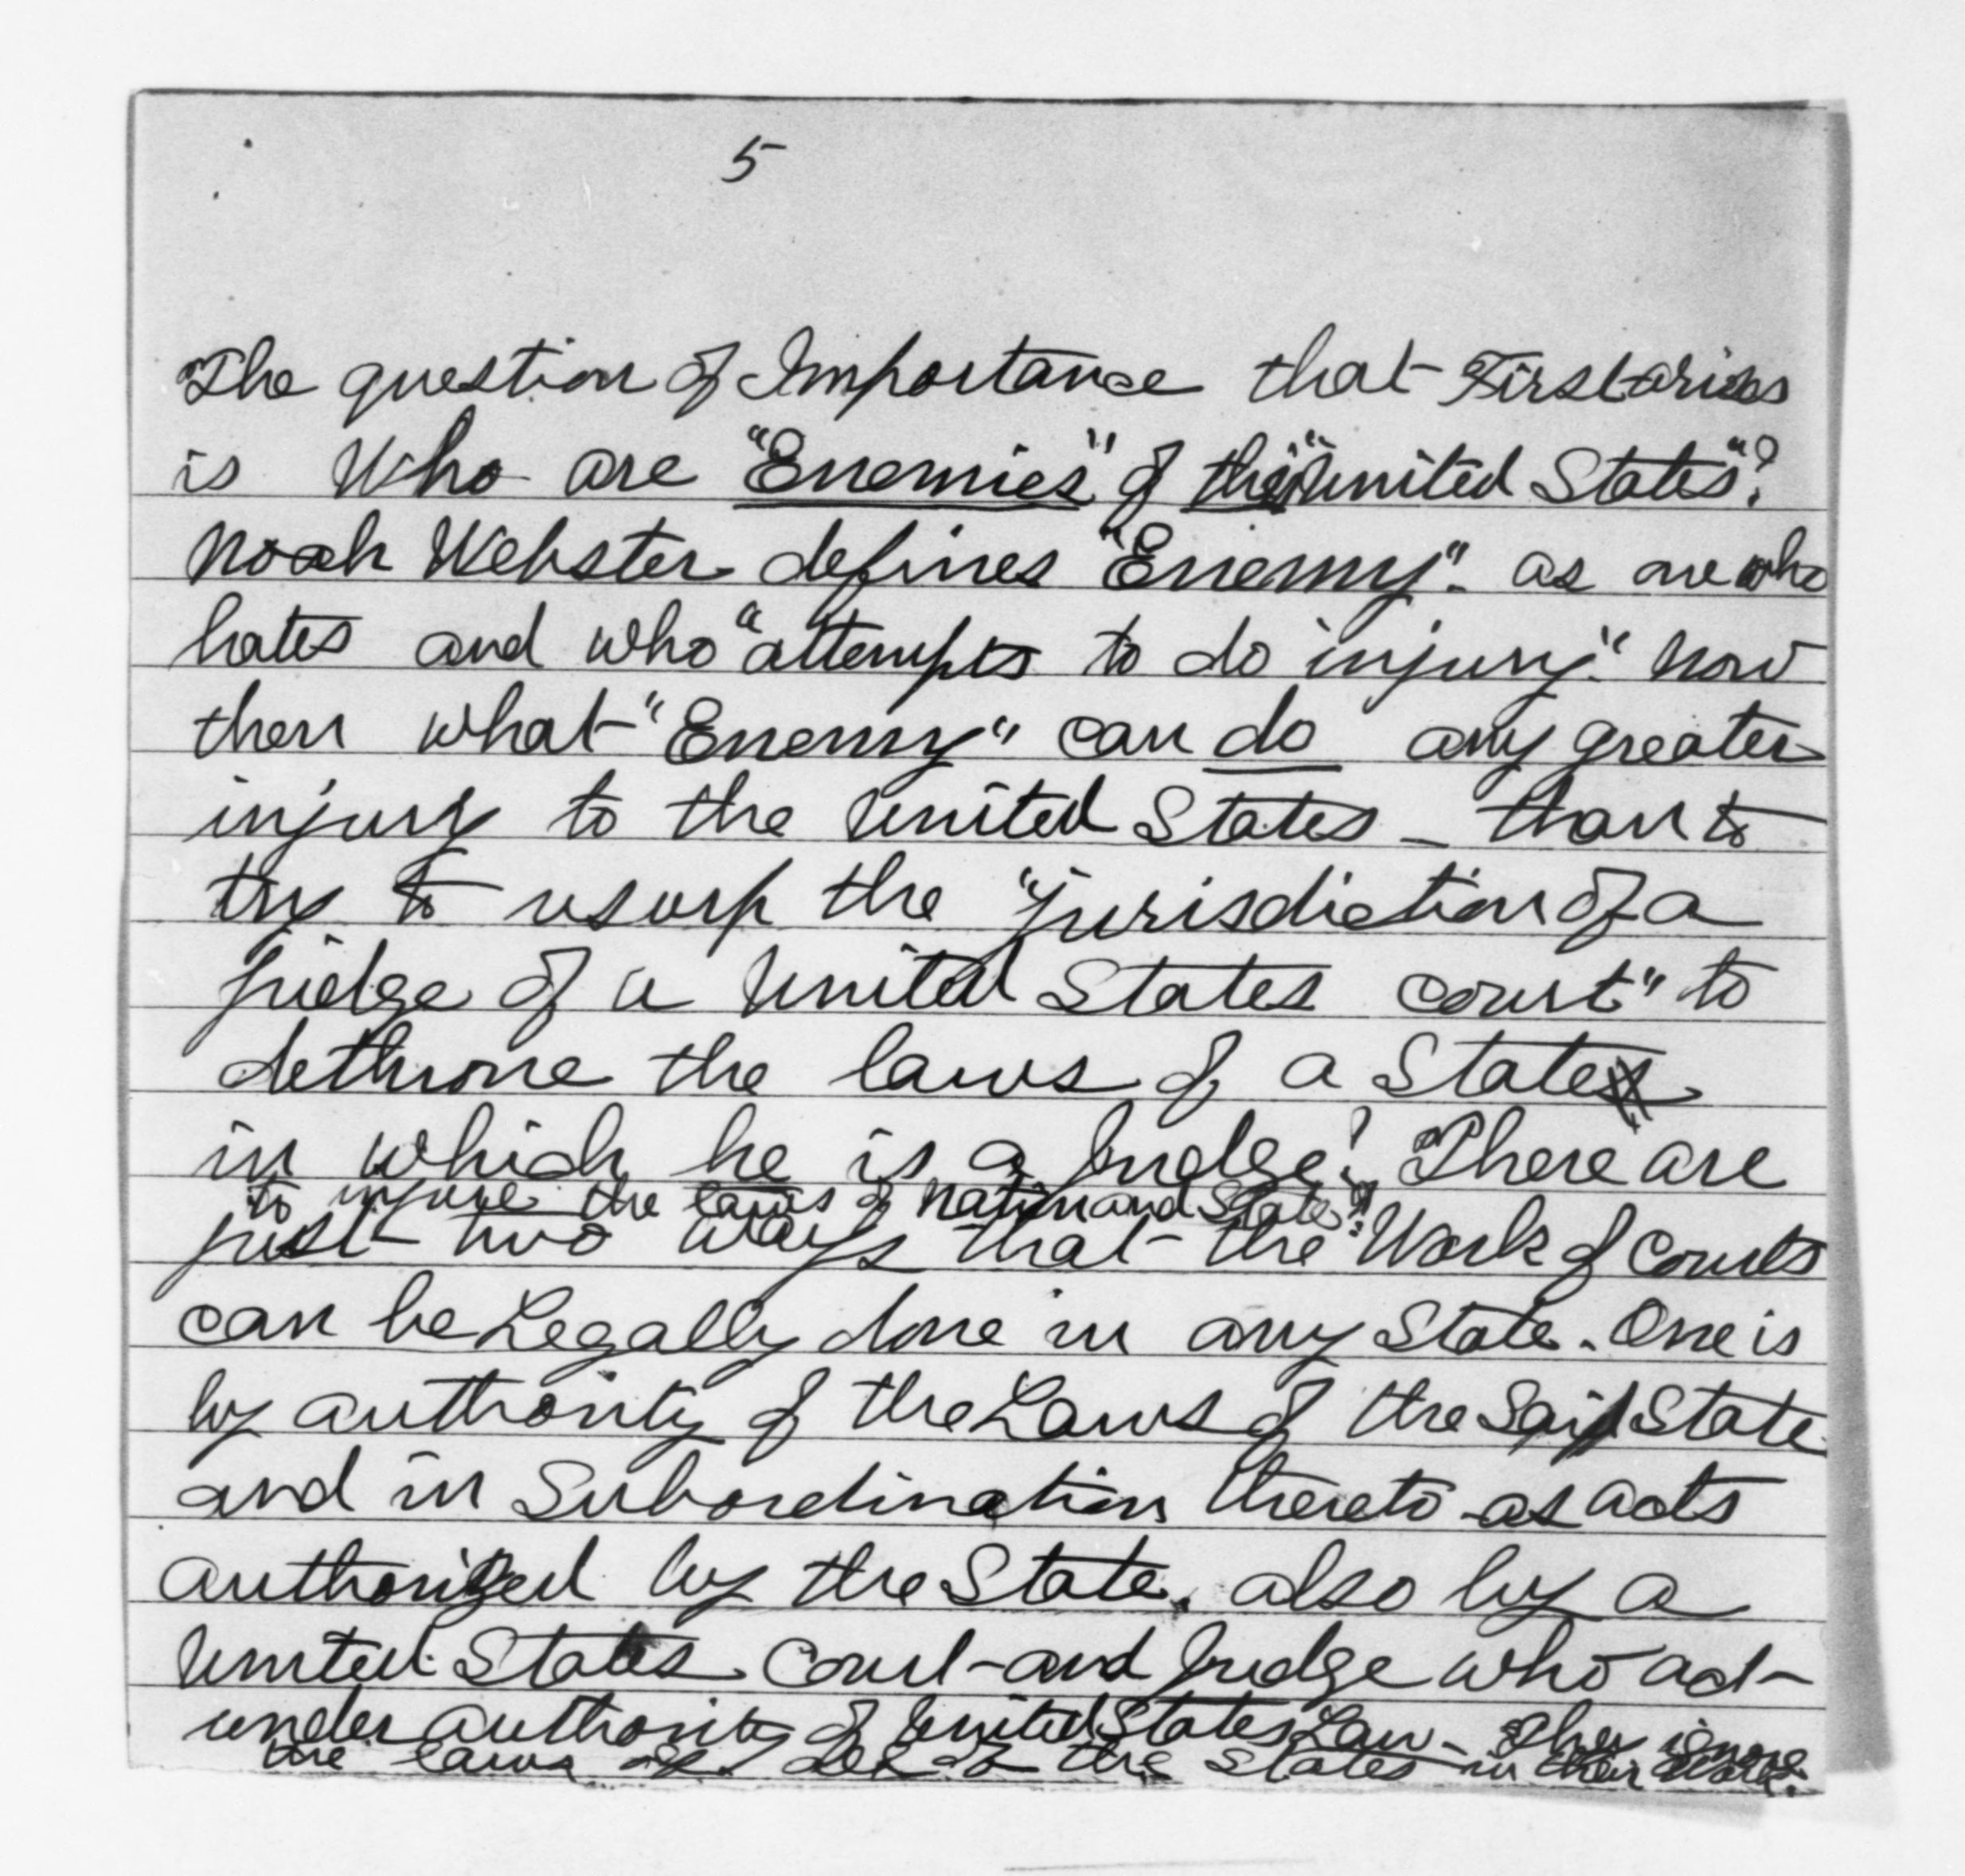 5
The question of Importance that First arises
is Who are "Enemies" of the "United States"?
Noah Webster defines "Enemy". as one who
hates and who "attempts to do injury." Now
then what "Enemy" can do any greater
injury to the United States - than to
try to usurp the "jurisdiction of a
judge of a United States court" to
dethrone the laws of a State
in which he is a Judge? There are
to injure the laws of Nation and State?"
just two ways that the Work of Courts
can be Legally done in any State. One is
by authority of the Laws of the Said State
and in Subordination thereto as acts
authorized by the State, also by a
United States Court and Judge who act
under authority of United States Law - They ignore
the laws of the States in their